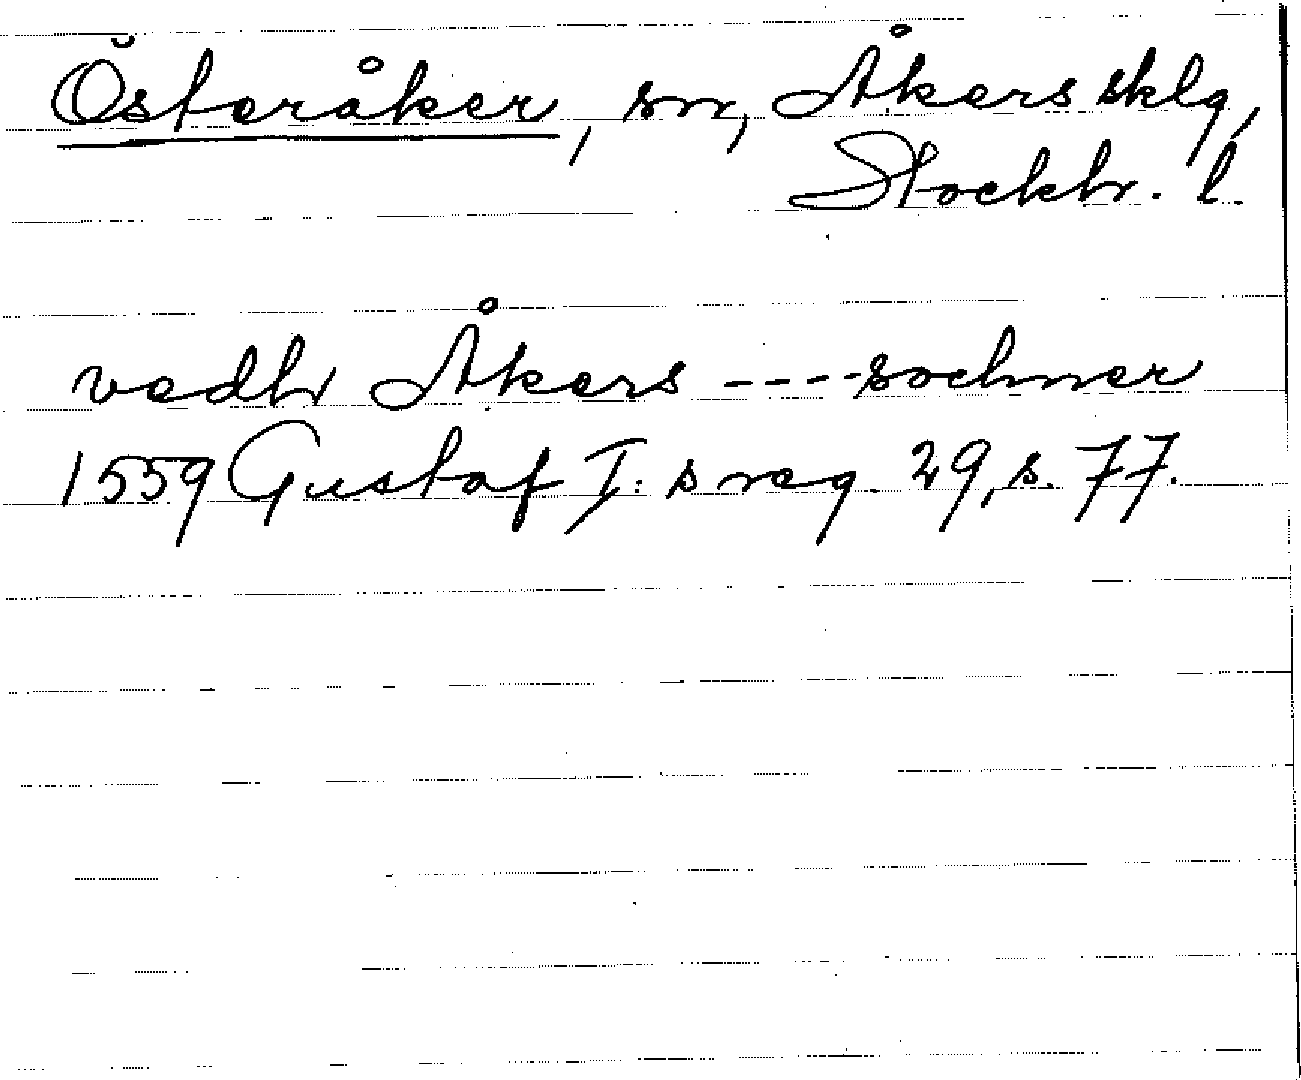 Österåker, sn, Åkers sklg,
Stockh. l.
vedh Åkers ----sochner
1559 Gustaf I:s reg. 29, s. 77.